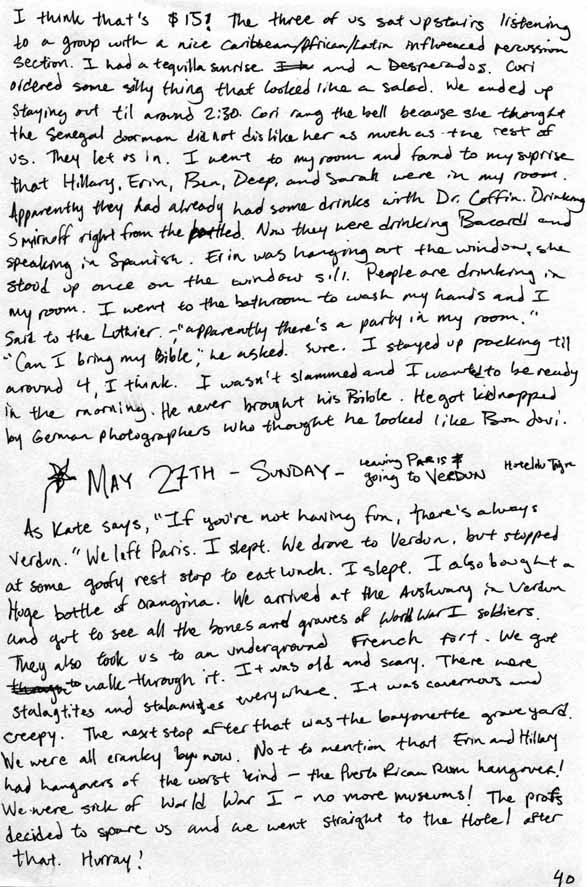 I think that's $15! The three of us sat upstairs listening
to a group with a nice Caribbean/African/Latin influenced percussion
section. I had a tequilla sunrise and a Desperados. Cori
ordered some silly thing that looked like a salad. We ended up
staying out til around 2:30. Cori rang the bell because she thought
the Senegal doorman did not dislike her as much as the rest of
us. They let us in. I went to my room and found to my suprise
that Hillary, Erin, Ben, Deep, and Sarah were in my room.
Apparently they had already had some drinks with Dr. Coffin. Drinking
Smirnoff right from the bottled. Now they were drinking Bacardi and
speaking in Spanish. Erin was hanging out the window, she
stood up once on the window sill. People are drinking in
my room. I went to the bathroom to wash my hands and I
said to the Luthier - "apparently there's a party in my room."
"Can I bring my Bible," he asked. Sure. I stayed up packing til
around 4, I think. I wasn't slammed and I wanted to be ready
in the morning. He never brought his Bible. He got kidnapped
by German photographers who thought he looked like Bon Jovi.
MAY 27TH - SUNDAY - leaving PARIS & going to VERDUN Hotel du
As Kate says, "If you're not having fun, there's always
Verdun." We left Paris. I slept. We drove to Verdun, but stopped
at some goofy rest stop to eat lunch. I slept. I also bought a
Huge bottle of Orangina. We arrived at the in Verdun
and got to see all the bones and graves of World War I soldiers.
They also took us to an underground French fort. We got
to walk through it. It was old and scary. There were
stalagtites and stalamites everywhere. It was cavernous and
creepy. The next stop after that was the bayonette graveyard.
We were all cranky by now. Not to mention that Erin and Hillary
had hangovers of the worst kind - the Puerto Rican Rum hangover!
We were sick of World War I - no more museums! The profs
decided to spare us and we went straight to the Hotel after
that. Hurray!
40